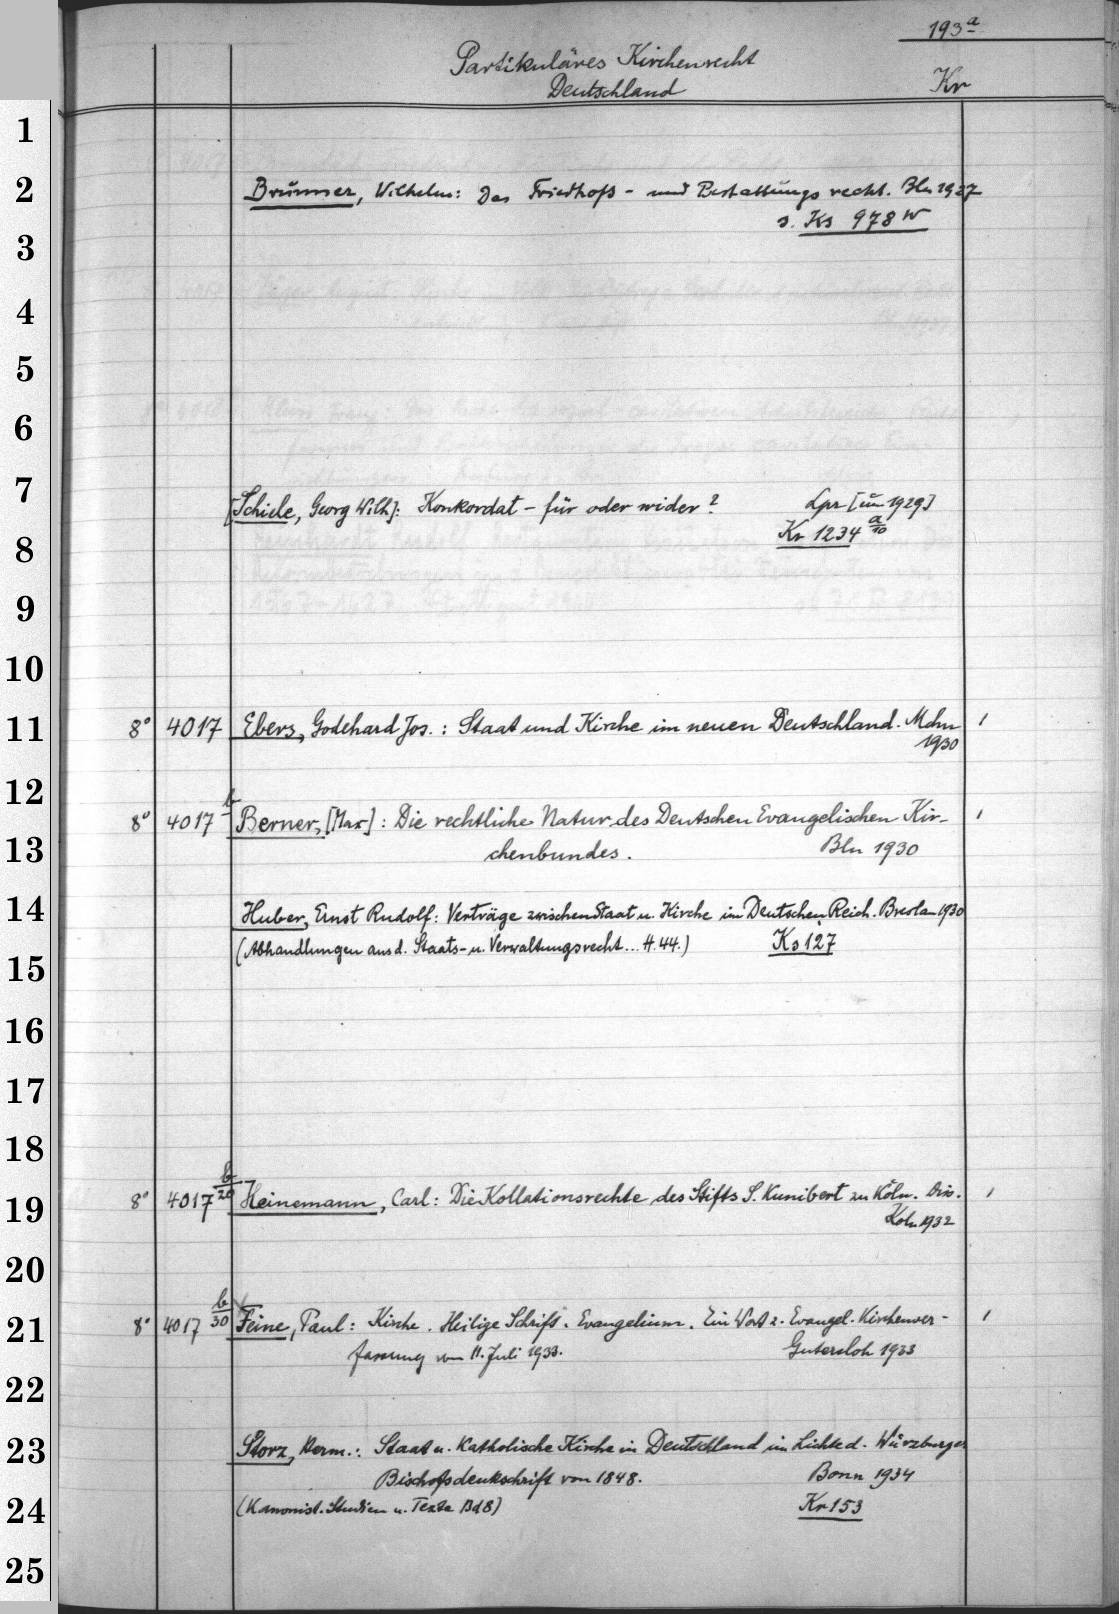 193a
Partikuläres Kirchenrecht
Deutschland
Kr
1
2 Brunner, Wilhelm: Das Friedhofs- und Bestattungsrecht. Bln 1927
s. Ks 978 w
3
4
5
6
7 [Schiele, Georg Wilh]: Konkordat - für oder wider? Lpz [um 1929]
8 Kr 1234 a/10
9
10
11 8° 4017 Ebers, Godehard Jos.: Staat und Kirche im neuen Deutschland. Mchn
1930
12
8° 4017 b Berner, [Max]: Die rechtliche Natur des Deutschen Evangelischen Kir-
13 chenbundes. Bln 1930
14 Huber, Ernst Rudolf: Verträge zwischen Staat u. Kirche im Deutschen Reich. Breslau 1930
(Abhandlungen aus d. Staats- u. Verwaltungsrecht... H. 44.) Ks 127
15
16
17
18
19 8° 4017 b/20 Heinemann, Carl: Die Kollationsrechte des Stifts S. Kunibert zu Köln. Diss.
Köln 1932
20
21 8° 4017 b/30 Feine, Paul: Kirche. Heilige Schrift. Evangelium. Ein Wort z. Evangel. Kirchenver-
fassung vom 11. Juli 1933. Gütersloh 1933
22
23 Storz, Herm.: Staat u. Katholische Kirche in Deutschland im Lichte d. Würzburger
Bischofsdenkschrift von 1848. Bonn 1934
24 (Kanonist. Studien u. Texte Bd 8) Kr 153
25